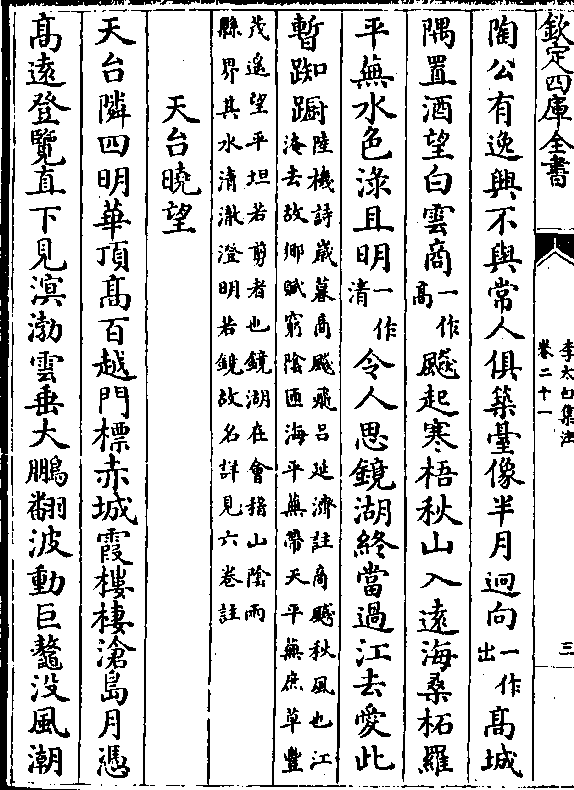 欽定四庫全書
李太白集注
卷二十一
三
陶公有逸興不與常人俱築臺像半月逈向一作出髙城
隅置酒望白雲商一作髙飈起寒梧秋山入遠海桑柘羅
平蕪水色淥且明一作清令人思鏡湖終當過江去愛此
暫踟蹰陸機詩嵗暮商飈飛吕延濟註商飈秋風也江
淹去故鄉賦窮隂匝海平蕪帶天平蕪庶草豐
茂遙望平坦若剪者也鏡湖在會稽山隂兩
縣界其水清澈澄明若鏡故名詳見六卷註
天台曉望
天台隣四明華頂髙百越門標赤城霞樓棲滄島月憑
髙遠登覽直下見溟渤雲垂大鵬翻波動巨鼇没風潮